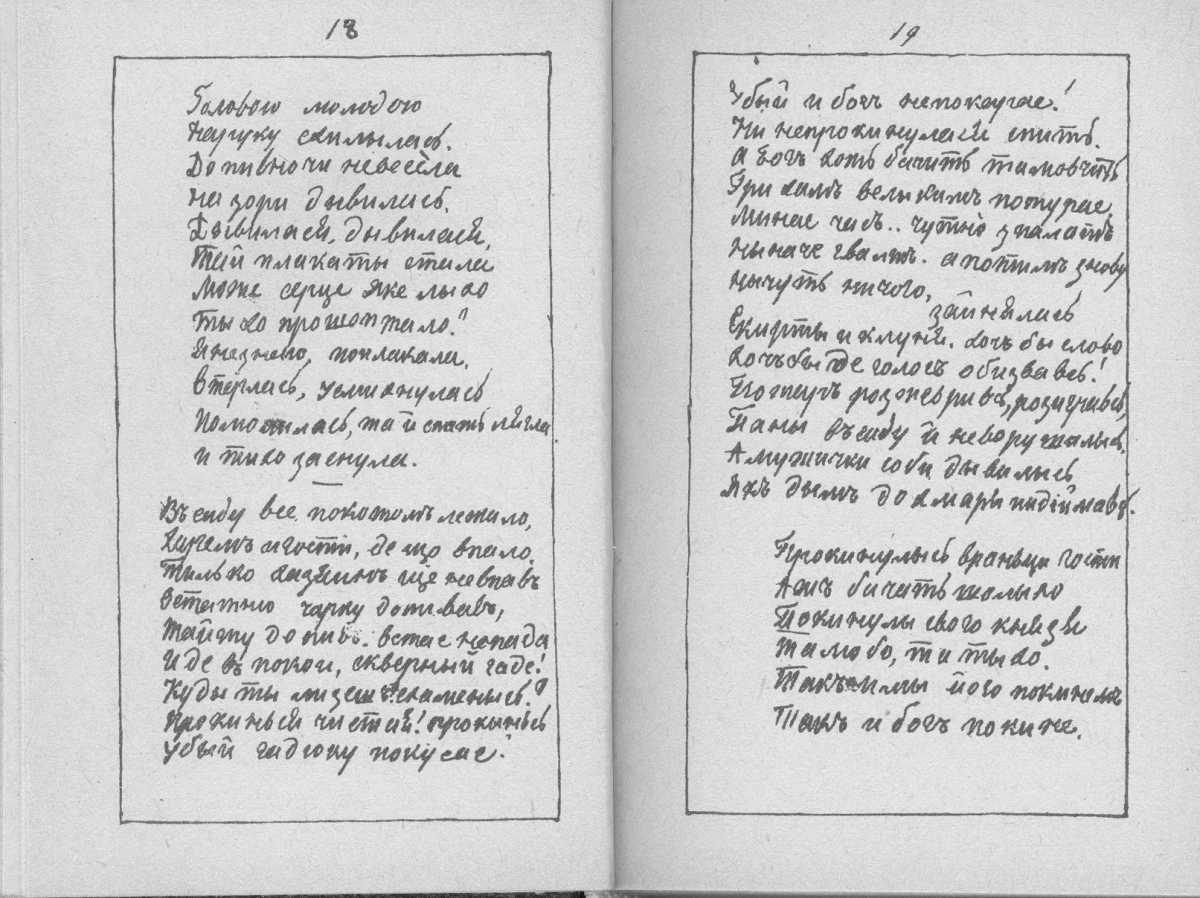 18
Головою молодою
На руку схилылась.
До пивночи невесела
на зори дывилась.
Дывиласѣ, дывиласѣ,
Тай плакаты стала
Може серце яке лыхо
Тыхо прошептало?
Я незнаю, поплакала.
втерлась, усмихнулась
Помолилась, та й спать лягла
и тихо заснула.
Въ саду все покотомъ лежало,
Хляемъ и гости, де що впало.
Тилько хазяинъ ще невпавъ
Остатню чарку допивавъ,
Тай ту допивъ. встае непада
Иде въ покои, скверный гаде!
Куды ты лизеш схаменысь?
Прокиньсѣ чистая! прокынься
Убый гадюку покусае!
19
Убый и богъ непокарае!
Ни непрокинуласѣ спить.
А богъ хоть бачить та мовчить
Грихамъ велыкимъ потурае.
Минае часъ.. чутно з палатъ
Ныначе гвалтъ. а потимъ знову
Нычуть ничого,
зайнялись
Скирты и клуня. хочъ бы слово
Хочъ бы де голосъ обизвавсь!
Пожаръ розжеврився, розигравсь,
Паны въ саду й неворушылись.
А мужички соби дывилысь
Якъ дымъ до хмары пидіймавсь.
Прокинулысь вранци гости
Ажъ бачать шо лыхо
Покинулы свого князя
Та любо, та тыхо.
Такъ и мы його покинемъ
Такъ и богъ покине.